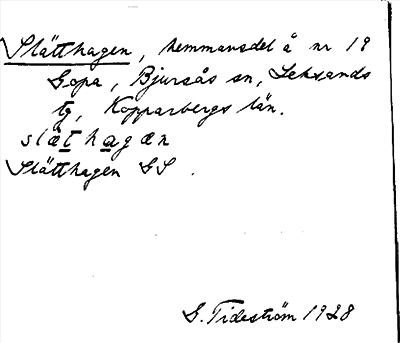 Slätthagen, hemmansdel å nr 19
Gopa, Bjursås sn, Leksands
tg, Kopparbergs län.
släthagæn
Slätthagen GS.
G. Tideström 1928